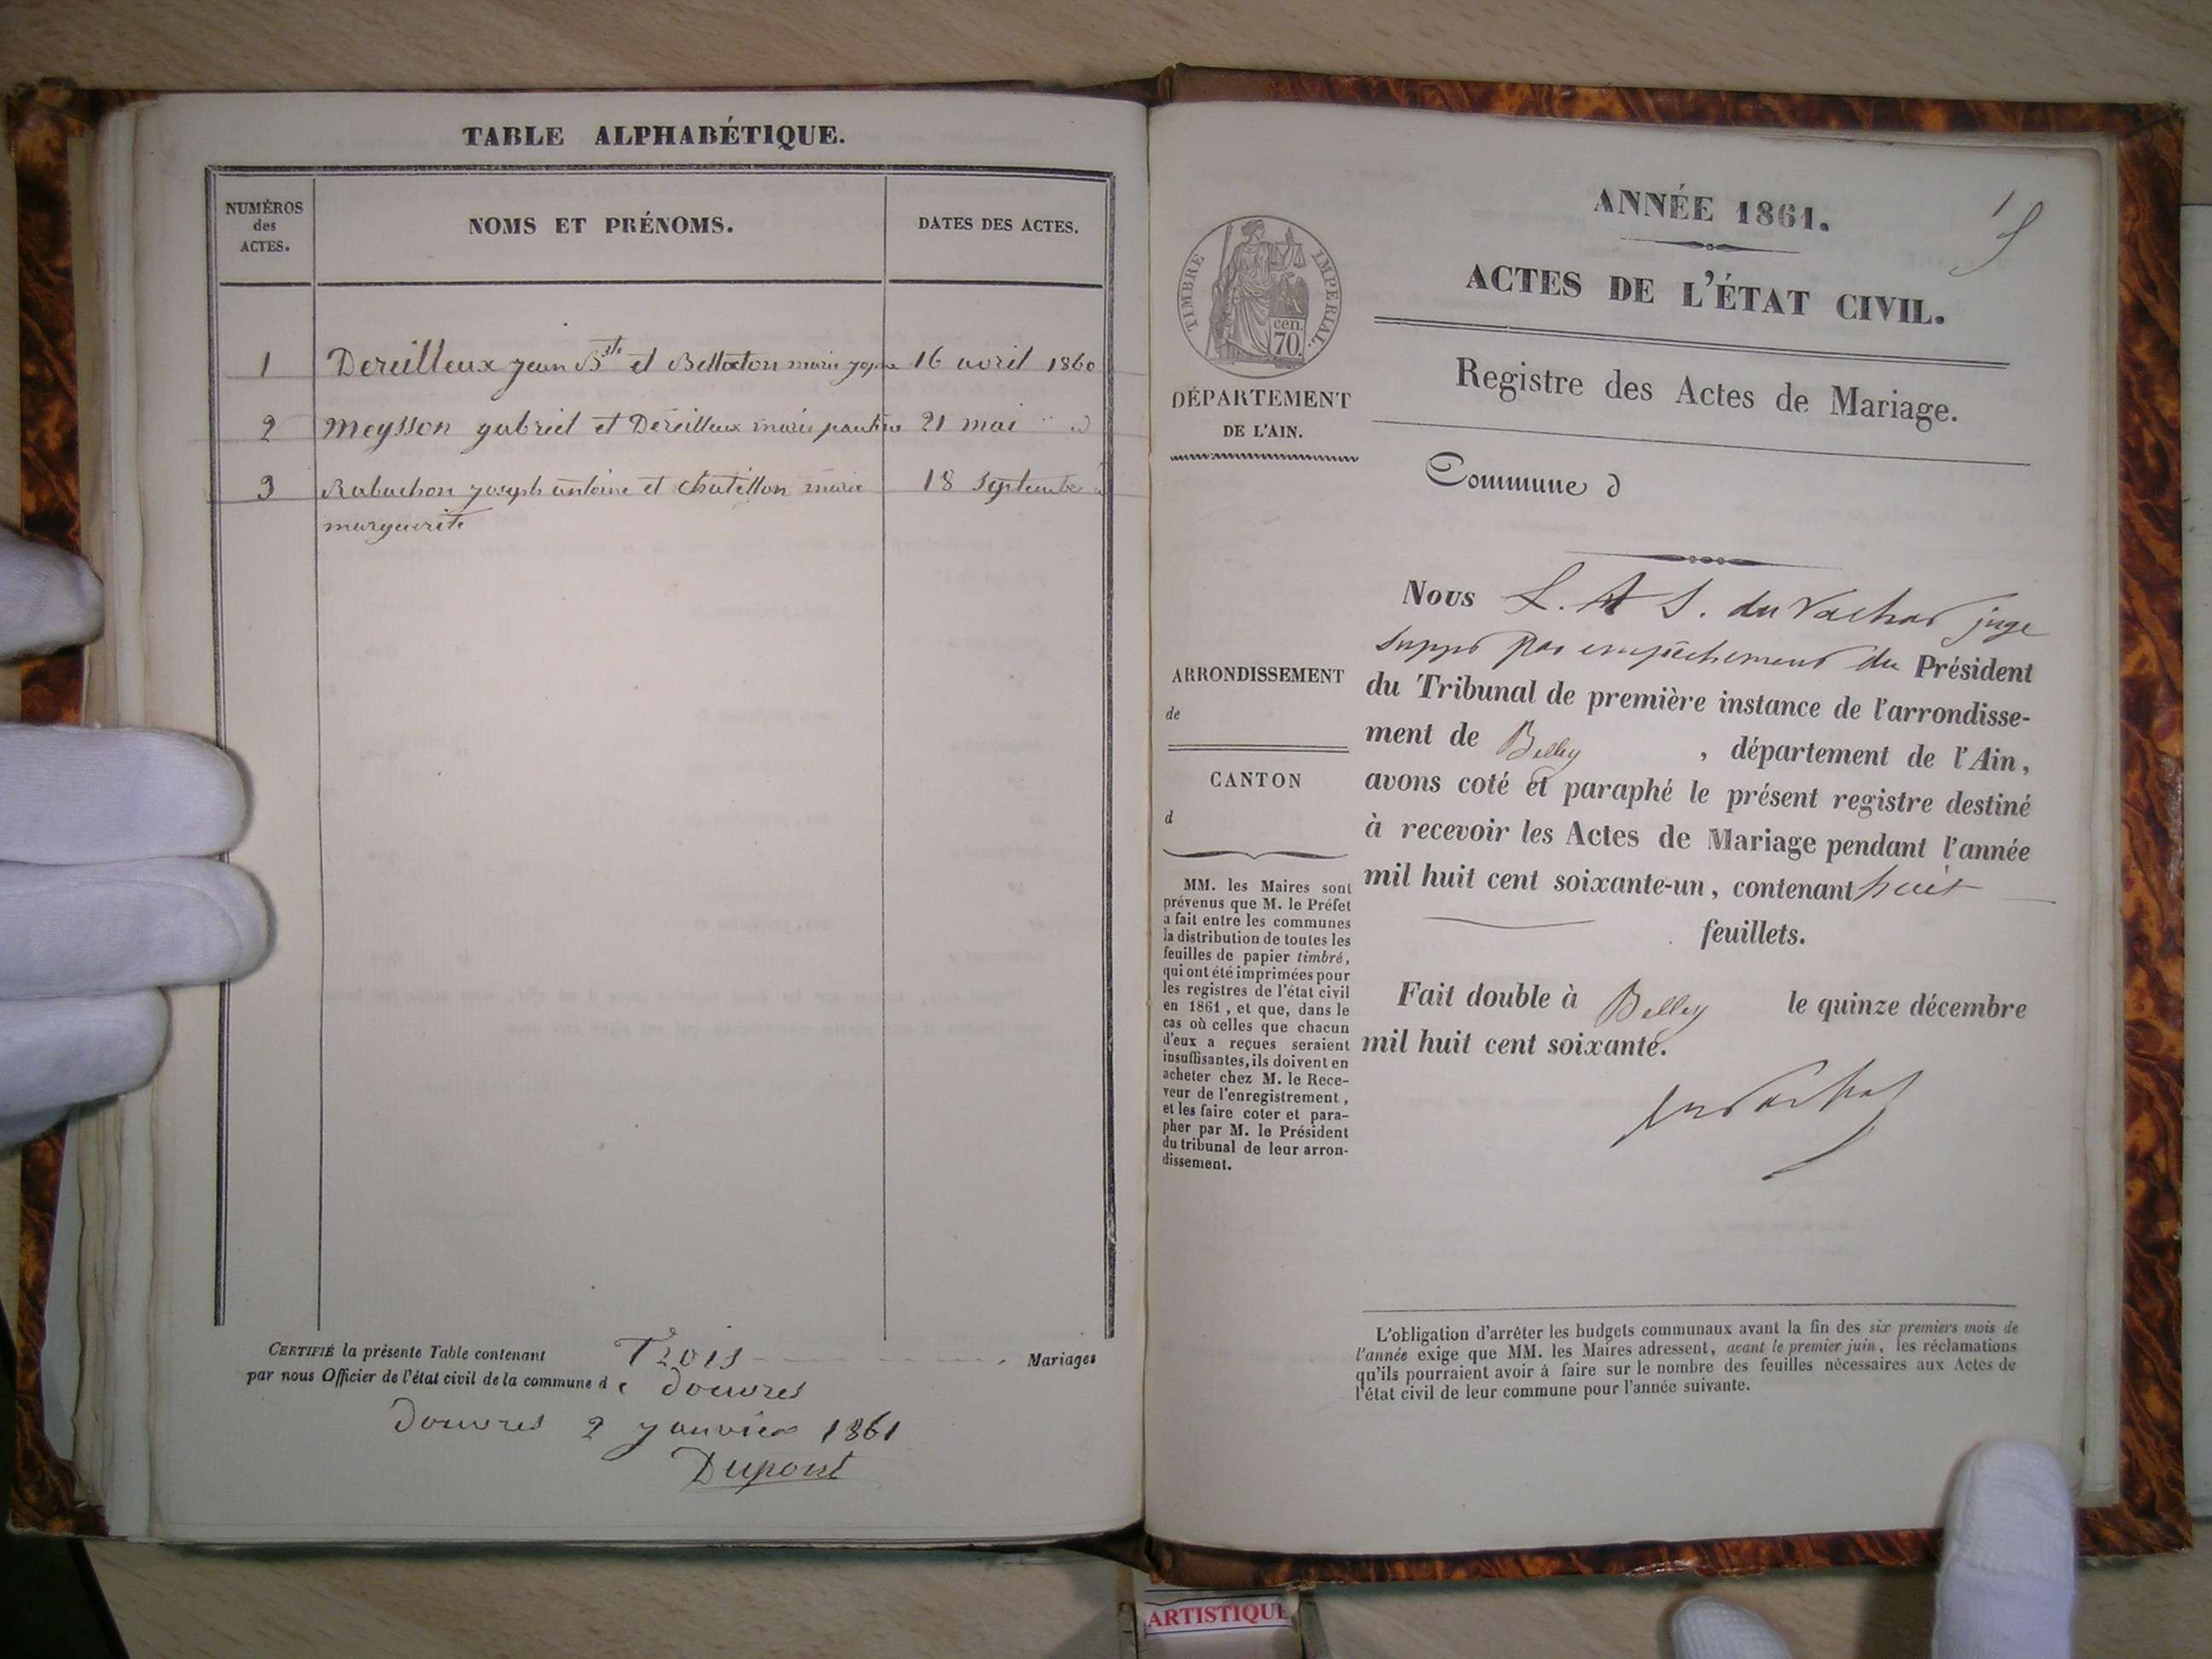 TABLE ALPHABÉTIQUE.
NUMÉROS des ACTES.
NOMS ET PRÉNOMS.
DATES DES ACTES.
1 Dereilleux jean Bte et marie 16 avril 1860
2 Meysson gabriel et Dereilleux marie 21 mai d
3 Rabachon joseph antoine et chatillon marie 18 Septembre d
marguerite
CERTIFIÉ la présente Table contenant Trois Mariages
par nous Officier de l'état civil de la commune de douvres
Douvres 2 janvier 1861
Dupont
ANNÉE 1861.
1
ACTES DE L'ÉTAT CIVIL.
Registre des Actes de Mariage.
Commune d
TIMBRE IMPERIAL.
cen.
70.
DÉPARTEMENT
DE L'AIN.
ARRONDISSEMENT
de
CANTON
d
MM. les Maires sont
prévenus que M. le Préfet
a fait entre les communes
la distribution de toutes les
feuilles de papier timbré,
qui ont été imprimées pour
les registres de l'état civil
en 1861, et que, dans le
cas où celles que chacun
d'eux a reçues seraient
insuffisantes, ils doivent en
acheter chez M. le Rece-
veur de l'enregistrement,
et les faire coter et para-
pher par M. le Président
du tribunal de leur arron-
dissement.
Nous du Vachat juge
par empêchement du Président
du Tribunal de première instance de l'arrondisse-
ment de Belley, département de l'Ain,
avons coté et paraphé le présent registre destiné
à recevoir les Actes de Mariage pendant l'année
mil huit cent soixante-un, contenant huit
feuillets.
Fait double à Belley le quinze décembre
mil huit cent soixante.
L'obligation d'arrêter les budgets communaux avant la fin des six premiers mois de
l'année exige que MM. les Maires adressent, avant le premier juin, les réclamations
qu'ils pourraient avoir à faire sur le nombre des feuilles nécessaires aux Actes de
l'état civil de leur commune pour l'année suivante.
ARTISTIQUE